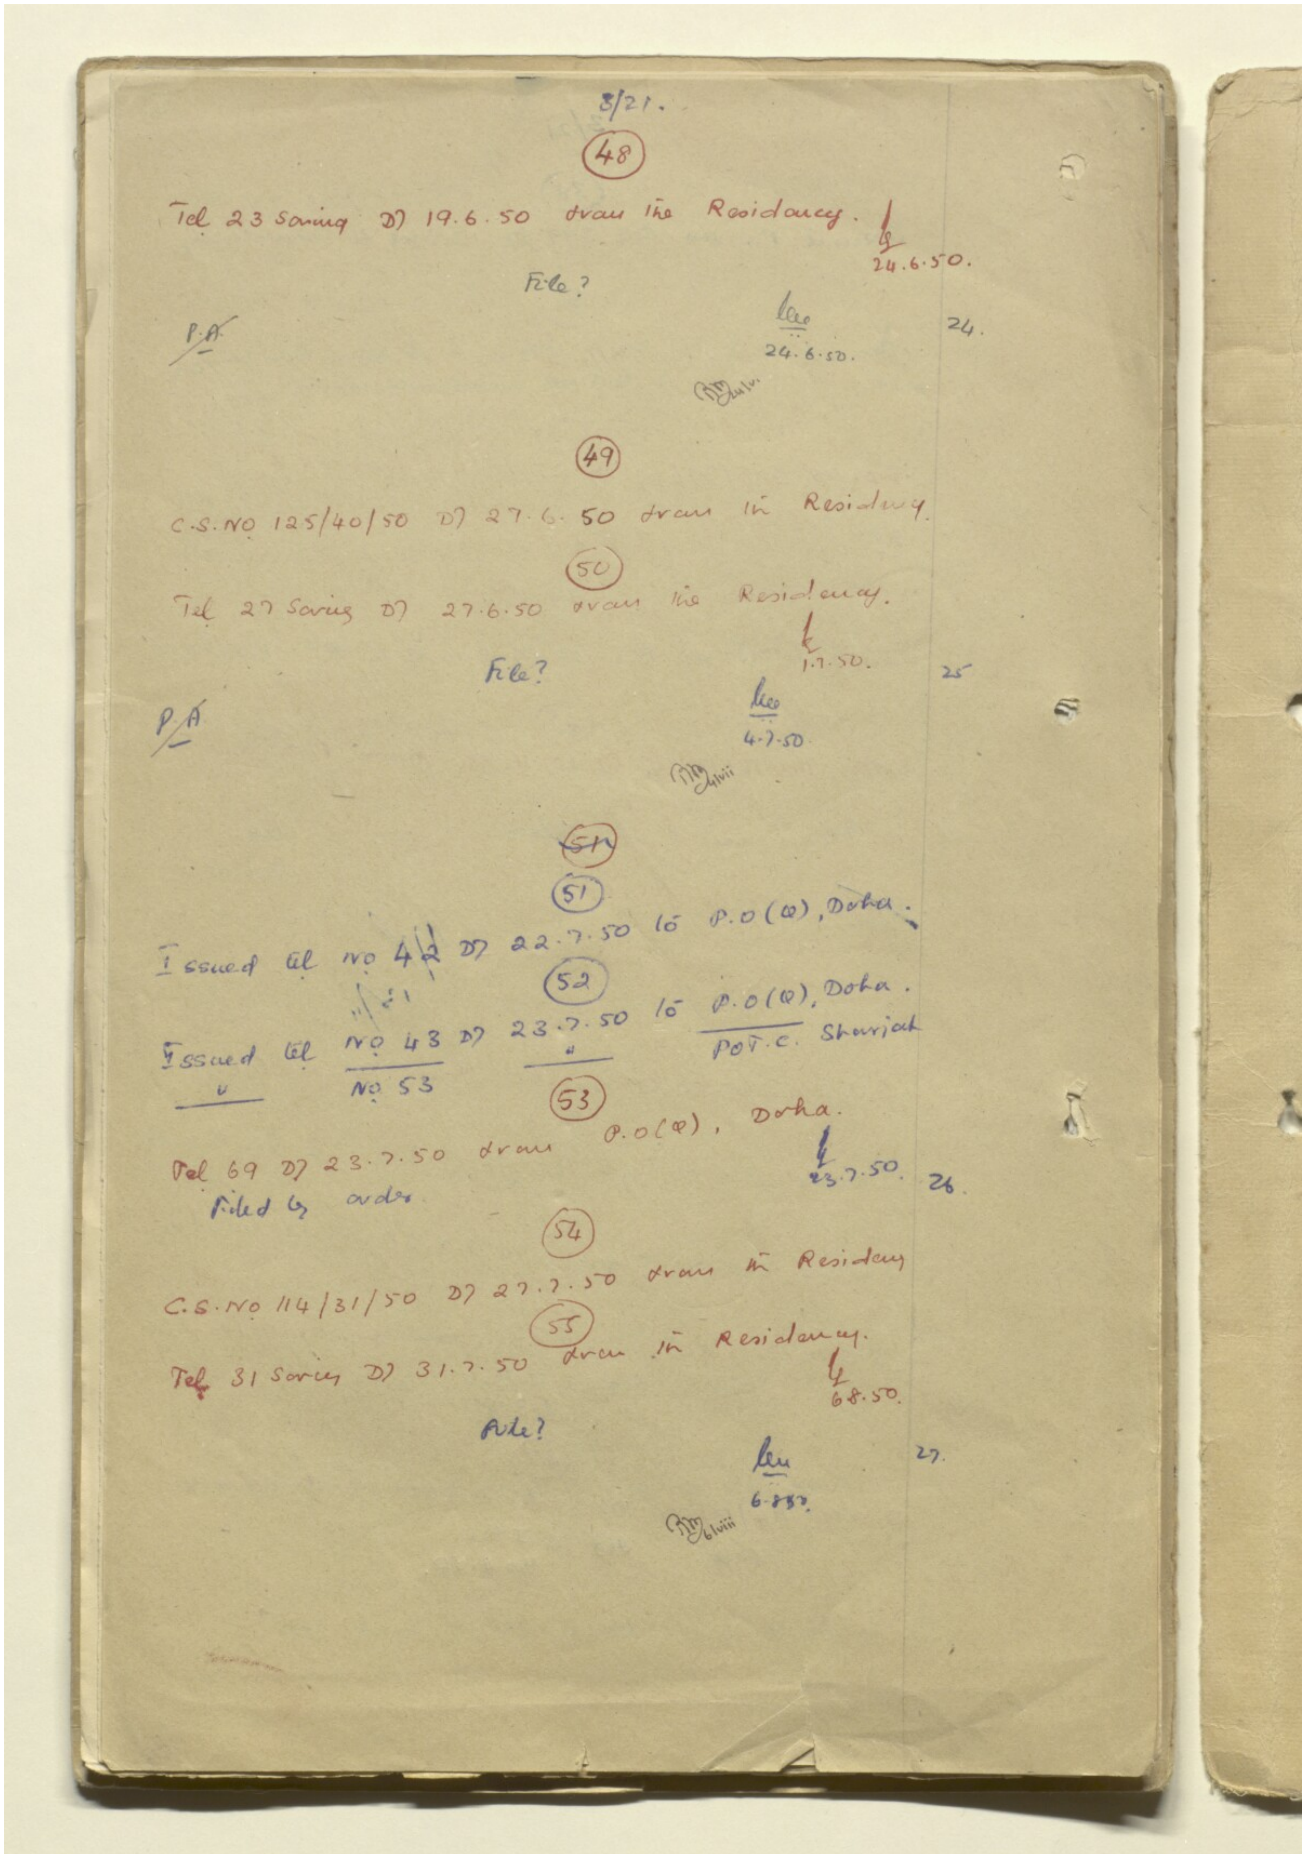 8/21.
48
Tel 23 Saving D/ 19.6.50 from the Residency.
24.6.50.
File?
P.A.
24.
24.6.50.
49
C.S. No 125/40/50 D/ 27.6.50 from the Residency.
50
Tel 27 Saving D/ 27.6.50 from the Residency.
1.7.50.
File?
25
P.A
4.7.50
4/vii
51
51
Issued tel No 42 D/ 22.7.50 to P.O(Q), Doha.
52
Issued tel No 43 D/ 23.7.50 to P.O(Q), Doha.
" No 53 " POT.C. Sharjah
53
Tel 69 D/ 23.7.50 from P.O(Q), Doha.
23.7.50.
26.
Filed by order
54
C.S. No 114/31/50 D/ 27.7.50 from the Residency
55
Tel 31 Saving D/ 31.7.50 from the Residency.
6.8.50.
File?
27.
6.8.50.
6/viii